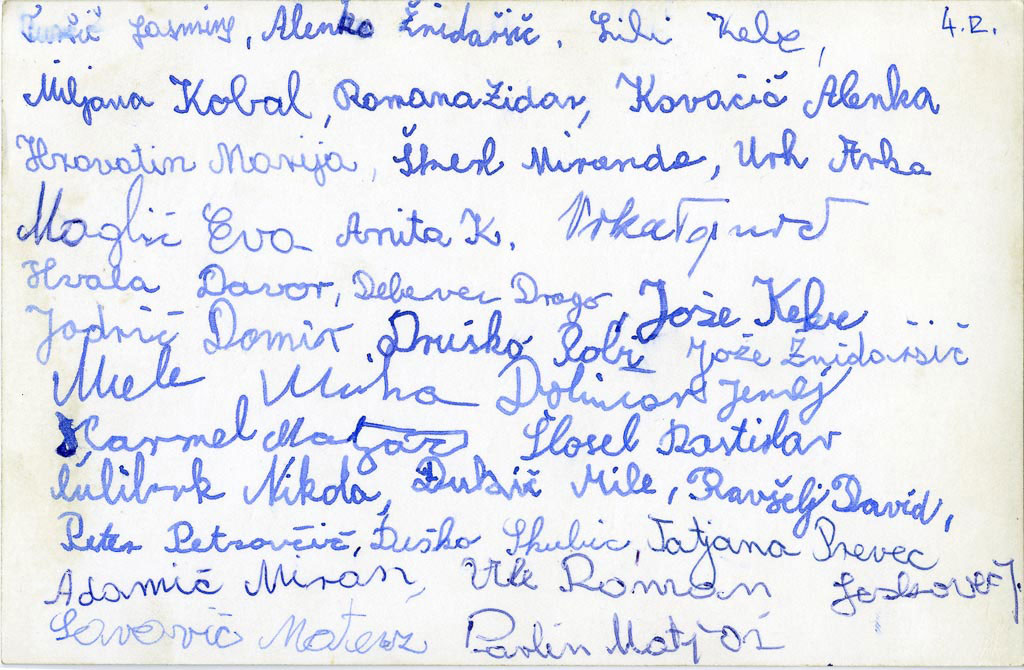 Jasmina, Alenka Žnidaršič, Lili Kebe, 4.R.
Miljana Kobal, Romana Zidar, Kovačič Alenka
Hrovatin Marija, Škerl Miranda, Urh Anka
Maglić Eva Anita K.
Hvala Davor, Debevec Drago, Jože Kebe
Jadrić Damir, Druško Robi Jože Žnidaršič
Mele Miha Dolinar Jernej
Karmel Matjaž Šlosel Rastislav
Nikola, Đukić Mile, Ravšelj David,
Peter Petrovčič, Duško Skubic, Tatjana Prevec
Adamič Miran, Ule Roman
Lavovič Matevz Pavlin Matjaž